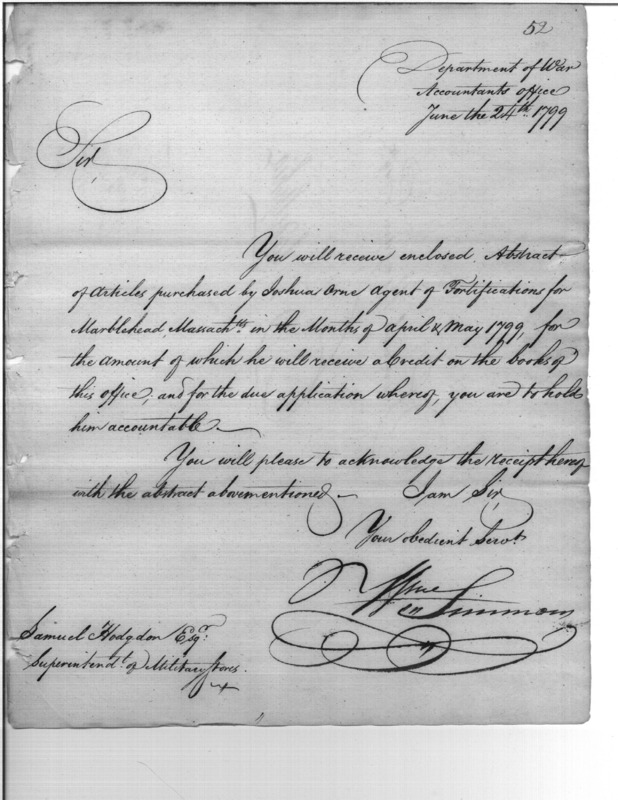 52
Department of War
Accountants office
June the 24th. 1799
Sir
You will receive enclosed, Abstract
of articles purchased by Joshua Orne Agent of Fortifications for
Marblehead, Massachtts in the Months of April & May 1799, for
the amount of which he will receive a Credit on the books of
this office, and for the due application whereof, you are to hold
him accountable
You will please to acknowledge the receipt hereof
with the abstract abovementioned I am Sir
Your obedient Servt.
Wm Simmons
Samuel Hodgdon Esqr.
Superintendt. of Military Stores.